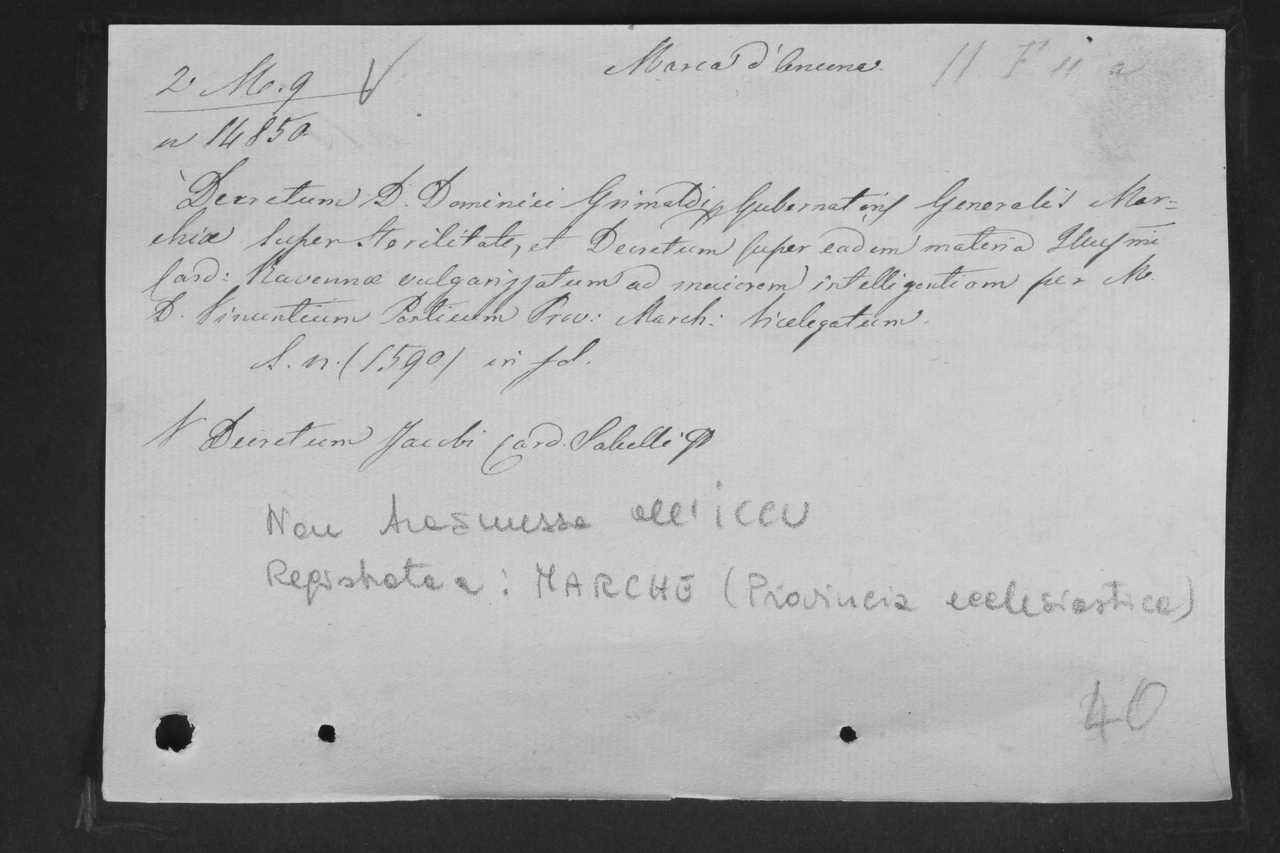 Marca d'Ancona.
2 M. 9
n 14850
Decretum D. Dominici Grimaldi Gubernatoris Generalis Mar=
chiæ super sterilitate, et Decretum super eadem materia Illusmi
Card: Ravennæ vulgarizzatum ad maiorem intelligentiam per M.
D. Vinuntium Portium Prov: March: Vicelegatum.
S. n. (1590) in fol.
V Decretum Jacobi Card. Sabelli
Non trasmessa all'ICCU
Registrata a: MARCHE (Provincia ecclesiastica)
40